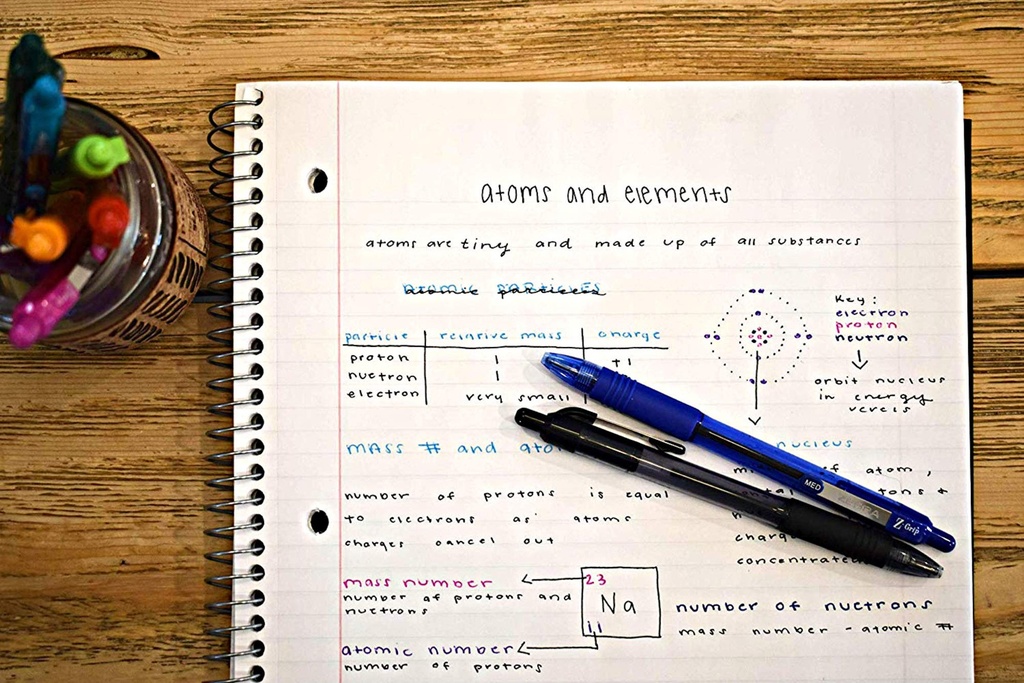 atoms and elements
atoms are tiny and made up of all substances
atomic particles
particle relative mass charge
proton 1 +1
nuetron 1
electron very small
Key:
electron
proton
neutron
orbit nucleus
in energy
MASS # and
nucleus
of atom,
number of protons is equal
to electrons as atoms
charges cancel out
concentrated
mass number
number of protons and
nuetrons
23
Na
11
atomic number
number of protons
number of nuetrons
mass number - atomic #
MED
Z-Grip